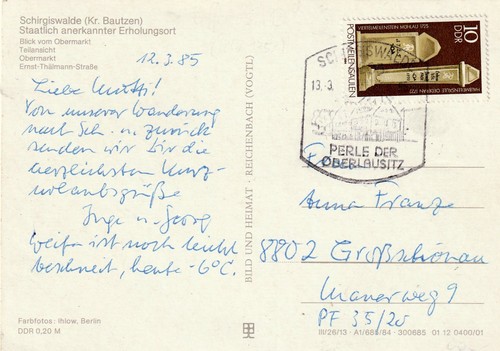 Schirgiswalde (Kr. Bautzen)
Staatlich anerkannter Erholungsort
Blick vom Obermarkt
Teilansicht
Obermarkt
Ernst-Thälmann-Straße
12.3.85
Liebe
Von unserer Wanderung
nach Sch. u. zurück
senden wir Dir die
herzlichsten Kurz-
urlaubsgrüße
Inge u. Georg
ist noch leicht
beschneit, heute -6°C.
Farbfotos: Ihlow, Berlin
DDR 0,20 M
BILD UND HEIMAT · REICHENBACH (VOGTL)
10
DDR
POSTMEILENSÄULEN
SCHIRGISWALDE
13.3.
PERLE DER
OBERLAUSITZ
Frau
Anna Franze
8802 Großschönau
Mauerweg 9
PF 35/20
III/26/13 · A1/688/84 · 300685 01 12 0400/01